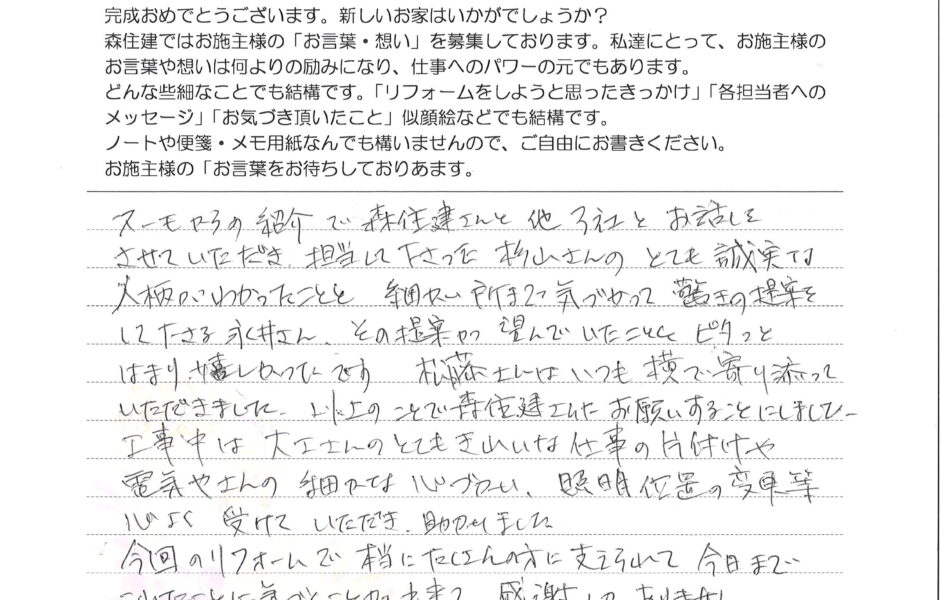 完成おめでとうございます。新しいお家はいかがでしょうか？
森住建ではお施主様の「お言葉・想い」を募集しております。私達にとって、お施主様の
お言葉や想いは何よりの励みになり、仕事へのパワーの元でもあります。
どんな些細なことでも結構です。「リフォームをしようと思ったきっかけ」「各担当者への
メッセージ」「お気づき頂いたこと」似顔絵などでも結構です。
ノートや便箋・メモ用紙なんでも構いませんので、ご自由にお書きください。
お施主様の「お言葉をお待ちしておりあます。
スーモからの紹介で森住建さんと他3社とお話しを
させていただき、担当して下さった杉山さんのとても誠実な
人柄がわかったことと 細かい所まで気づかって驚きの提案を
して下さる永井さん、その提案が望んでいたことにピタっと
はまり、嬉しかったです 松藤さんはいつも横で寄り添って
いただきました。以上のことで森住建さんにお願いすることにしました。
工事中は大工さんのとてもきれいな仕事の片付けや
電気やさんの細かな心づかい、照明位置の変更等
心よく受けていただき、助かりました
今回のリフォームで本当にたくさんの方に支えられて今日まで
これたことに気づくことが出来て 感謝しておりま